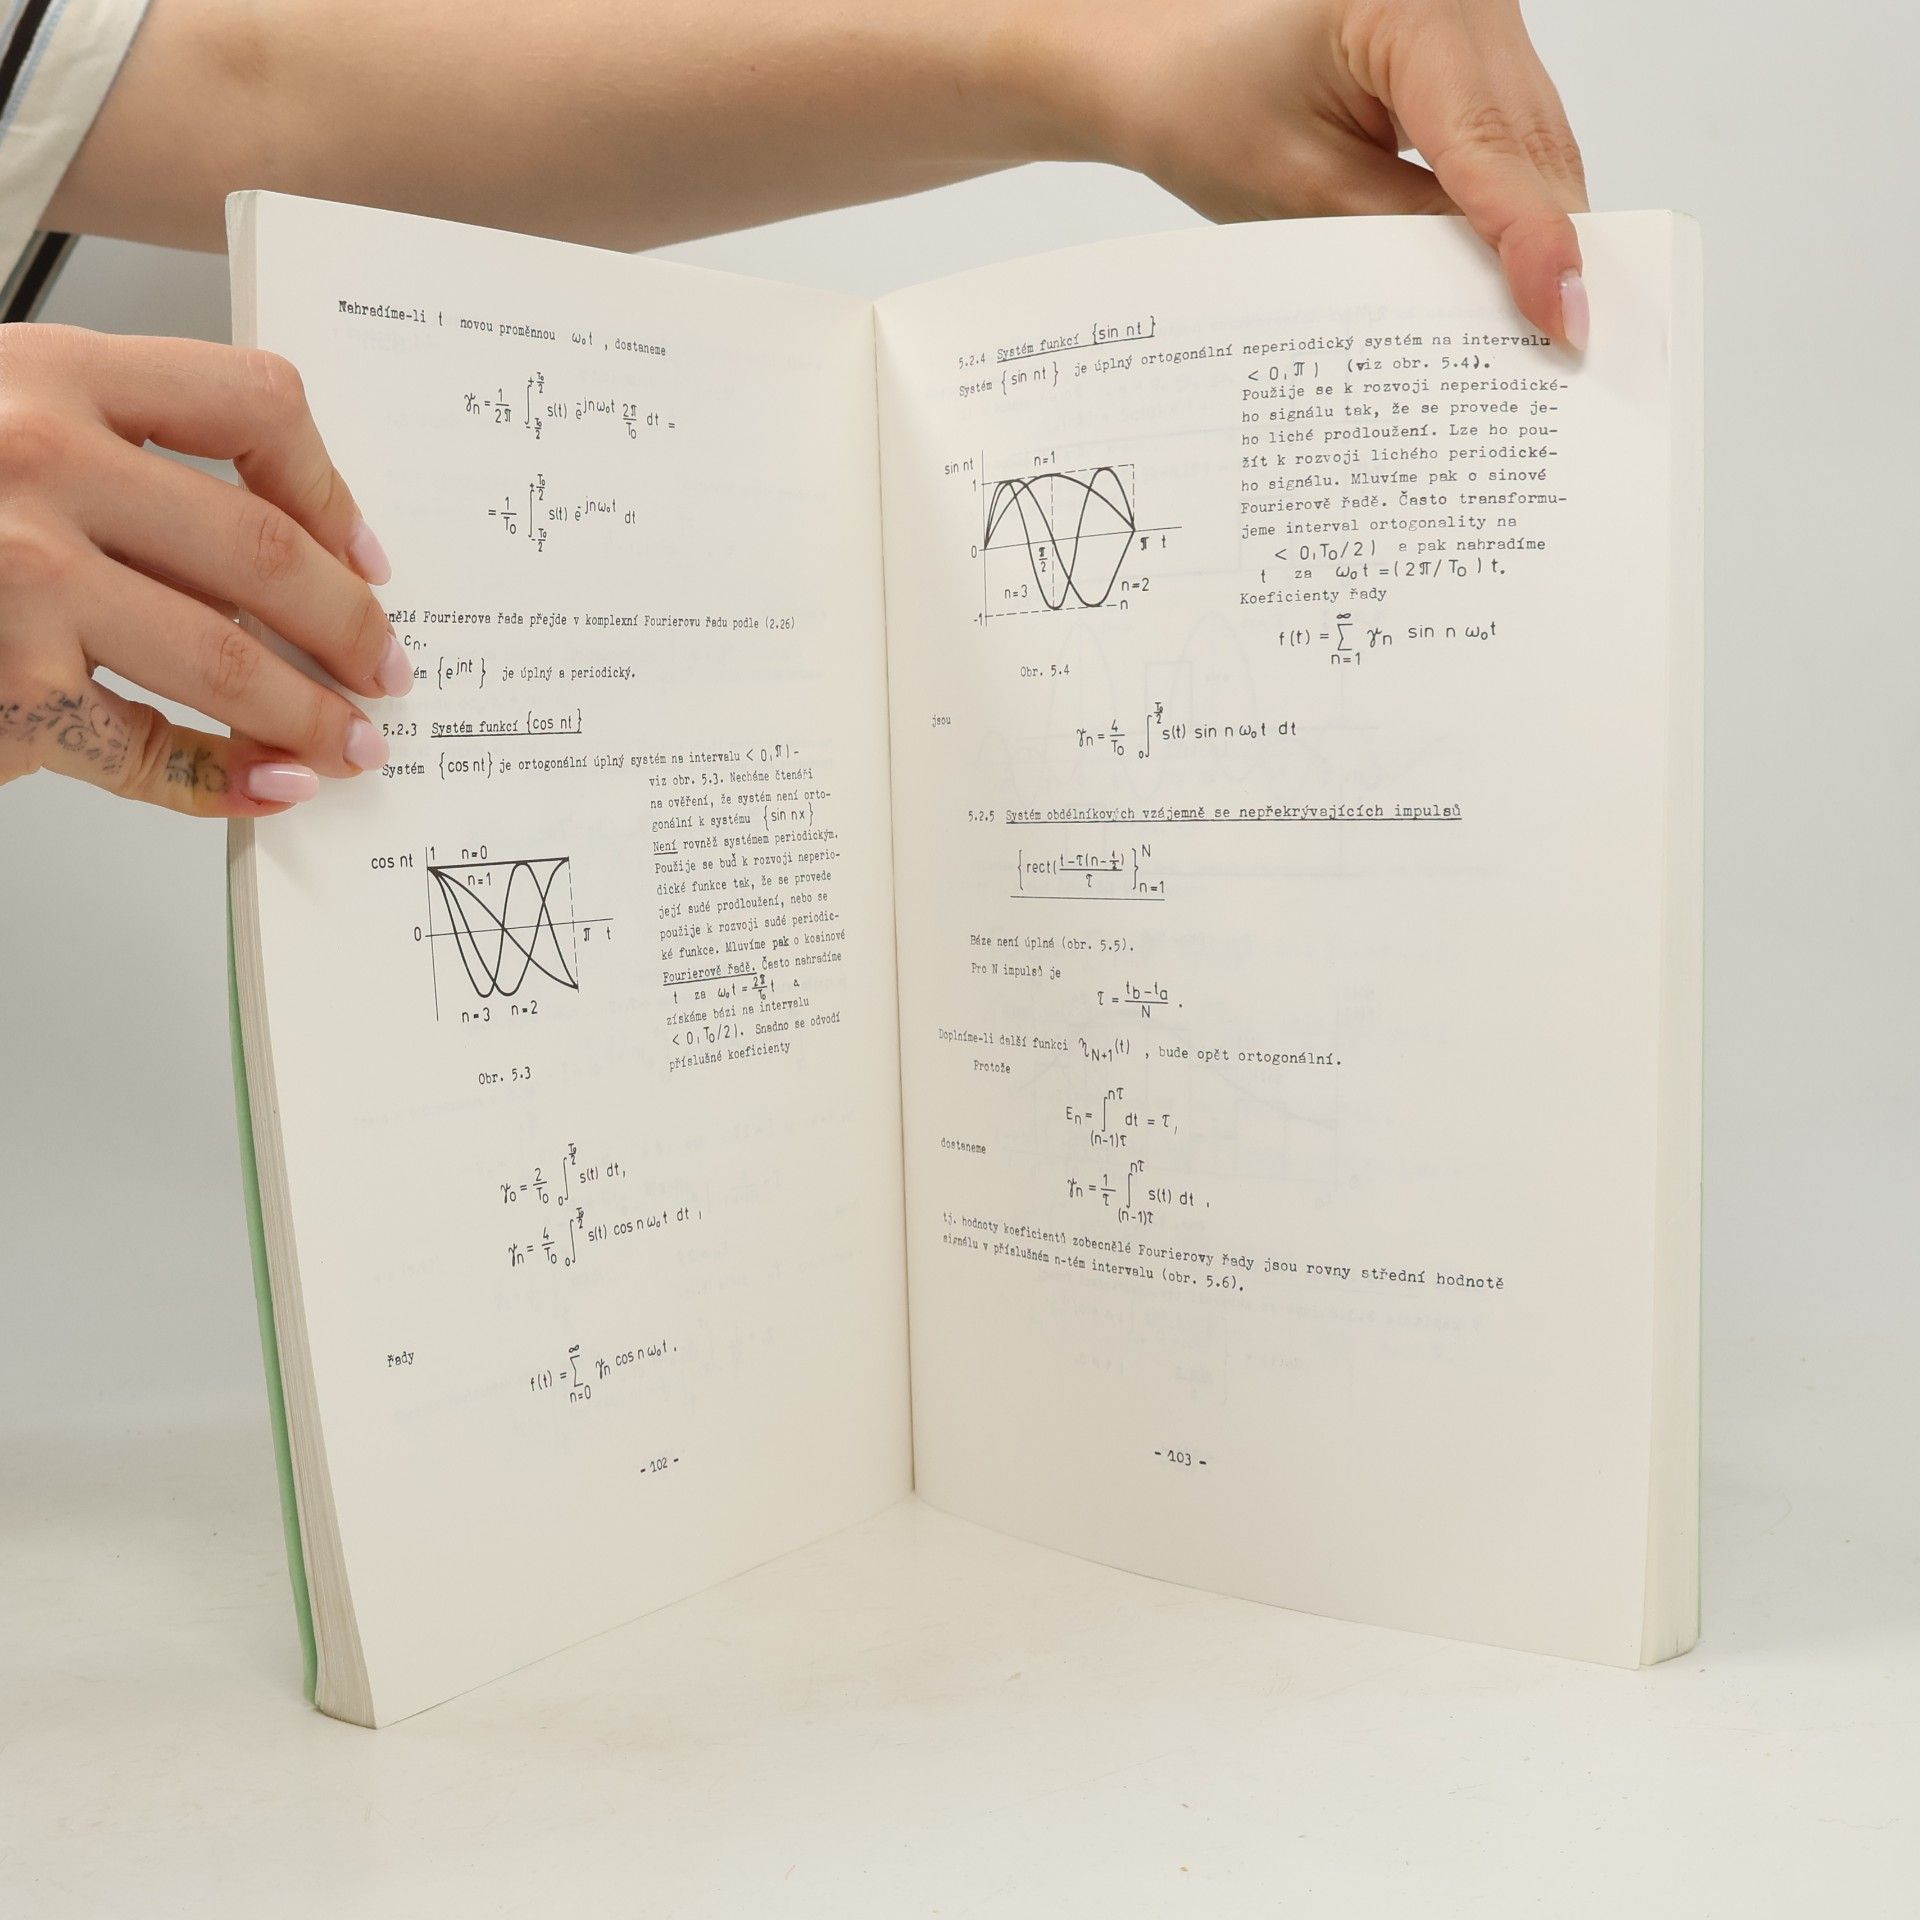 Nahradíme-li t novou proměnnou ω₀t , dostaneme
γn = 1/2π ∫_{-T₀/2}^{+T₀/2} s(t) e^{-jnω₀t} 2π/T₀ dt =
= 1/T₀ ∫_{-T₀/2}^{+T₀/2} s(t) e^{-jnω₀t} dt
Fourierova řada přejde v komplexní Fourierovu řadu podle (2.26)
cn.
{e^{jnt}} je úplný a periodický.
5.2.3 Systém funkcí {cos nt}
Systém {cos nt} je ortogonální úplný systém na intervalu < 0,π) -
viz obr. 5.3. Necháme čtenáři
na ověření, že systém není orto-
gonální k systému {sin nx}
Není rovněž systémem periodickým.
Použije se buď k rozvoji neperio-
dické funkce tak, že se provede
její sudé prodloužení, nebo se
použije k rozvoji sudé periodic-
ké funkce. Mluvíme pak o kosinové
Fourierově řadě. Často nahradíme
t za ω₀t = 2π/T₀ t a
získáme bázi na intervalu
< 0,T₀/2). Snadno se odvodí
příslušné koeficienty
cos nt
1
n=0
n=1
0
π t
n=3 n=2
Obr. 5.3
γ₀ = 2/T₀ ∫_0^{T₀/2} s(t) dt,
γn = 4/T₀ ∫_0^{T₀/2} s(t) cos n ω₀t dt ,
řady
f(t) = ∑_{n=0}^{∞} γn cos n ω₀t .
- 102 -
5.2.4 Systém funkcí {sin nt}
Systém {sin nt} je úplný ortogonální neperiodický systém na intervalu
< 0,π) (viz obr. 5.4).
Použije se k rozvoji neperiodické-
ho signálu tak, že se provede je-
ho liché prodloužení. Lze ho pou-
žít k rozvoji lichého periodické-
ho signálu. Mluvíme pak o sinové
Fourierově řadě. Často transformu-
jeme interval ortogonality na
< 0,T₀/2) a pak nahradíme
t za ω₀t = (2π/T₀) t.
Koeficienty řady
f(t) = ∑_{n=1}^{∞} γn sin n ω₀t
sin nt
n=1
1
0
π/2
π t
n=3
n=2
n
-1
Obr. 5.4
jsou
γn = 4/T₀ ∫_0^{T₀/2} s(t) sin n ω₀t dt
5.2.5 Systém obdélníkových vzájemně se nepřekrývajících impulsů
{rect( t-τ(n-1/2) / τ )}_{n=1}^{N}
Báze není úplná (obr. 5.5).
Pro N impulsů je
τ = (tb-ta)/N .
Doplníme-li další funkci η_{N+1}(t) , bude opět ortogonální.
Protože
En = ∫_{(n-1)τ}^{nτ} dt = τ,
dostaneme
γn = 1/τ ∫_{(n-1)τ}^{nτ} s(t) dt ,
tj. hodnoty koeficientů zobecnělé Fourierovy řady jsou rovny střední hodnotě
signálu v příslušném n-tém intervalu (obr. 5.6).
- 103 -